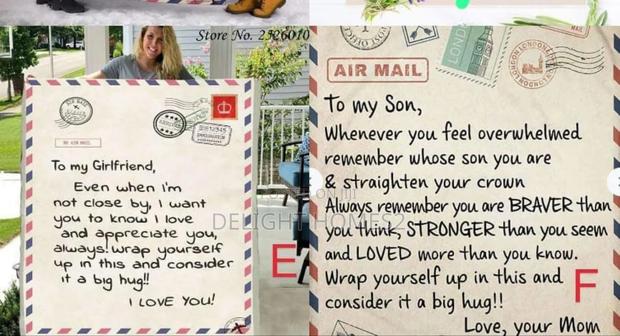 Store No. 2526010
To my Girlfriend,
Even when i'm
not close by, I want
you to know I love
and appreciate you,
always! wrap yourself
up in this and consider
it a big hug!!
I LOVE YOU!
E
LONDON
AIR MAIL
To my Son,
Whenever you feel overwhelmed
remember whose son you are
& straighten your crown
Always remember you are BRAVER than
you think, STRONGER than you seem
and LOVED more than you know.
Wrap yourself up in this and
consider it a big hug!!
Love, your Mom
F
DELIGHT HOMES2